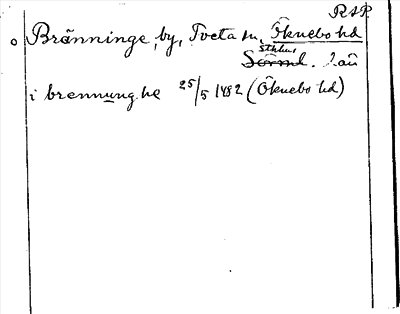 RAP
o Bränninge, by, Tveta sn, Öknebo hd
Sthlms
Sörml. län
i brennung he 25/5 1482 (Öknebo hd)